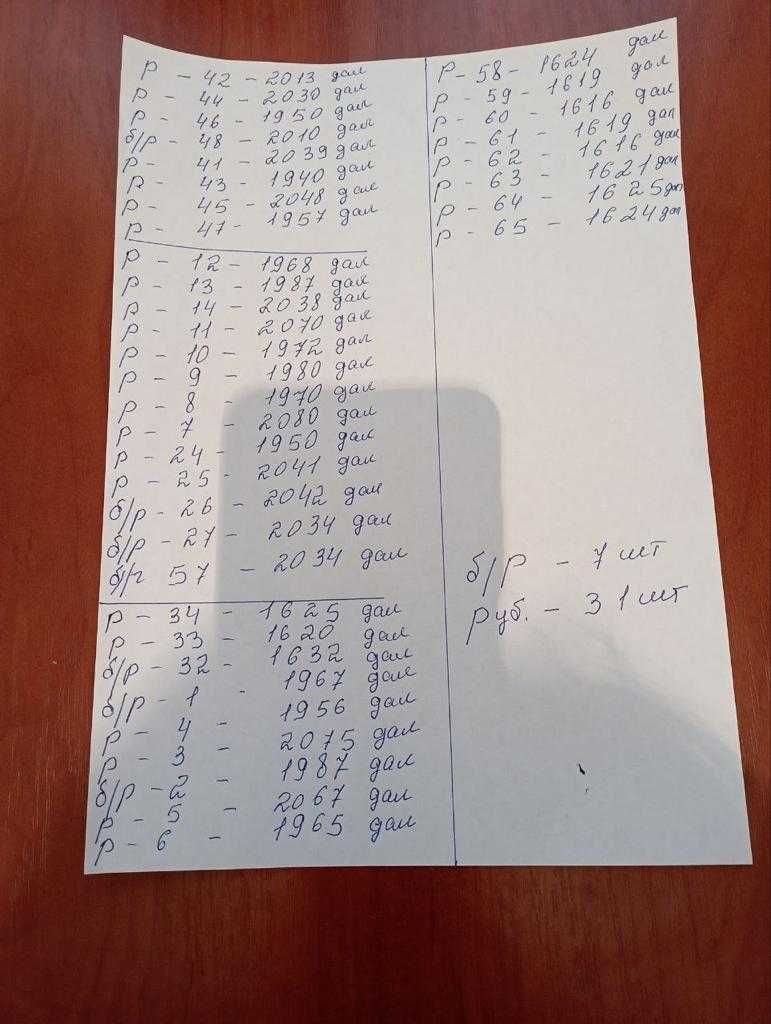 р - 42 - 2013 дал
р - 44 - 2030 дал
р - 46 - 1950 дал
б/р - 48 - 2010 дал
р - 41 - 2039 дал
р - 43 - 1940 дал
р - 45 - 2048 дал
р - 47 - 1957 дал
р - 12 - 1968 дал
р - 13 - 1987 дал
р - 14 - 2038 дал
р - 11 - 2070 дал
р - 10 - 1972 дал
р - 9 - 1980 дал
р - 8 - 1970 дал
р - 7 - 2080 дал
р - 24 - 1950 дал
р - 25 - 2041 дал
б/р - 26 - 2042 дал
б/р - 27 - 2034 дал
б/г 57 - 2034 дал
р - 34 - 1625 дал
р - 33 - 1620 дал
б/р - 32 - 1632 дал
б/р - 1 - 1967 дал
р - 4 - 1956 дал
р - 3 - 2075 дал
б/р - 2 - 1987 дал
р - 5 - 2067 дал
р - 6 - 1965 дал
р - 58 - 1624 дал
р - 59 - 1619 дал
р - 60 - 1616 дал
р - 61 - 1619 дал
р - 62 - 1616 дал
р - 63 - 1621 дал
р - 64 - 1625 дал
р - 65 - 1624 дал
б/р - 7 шт
руб. - 31 шт